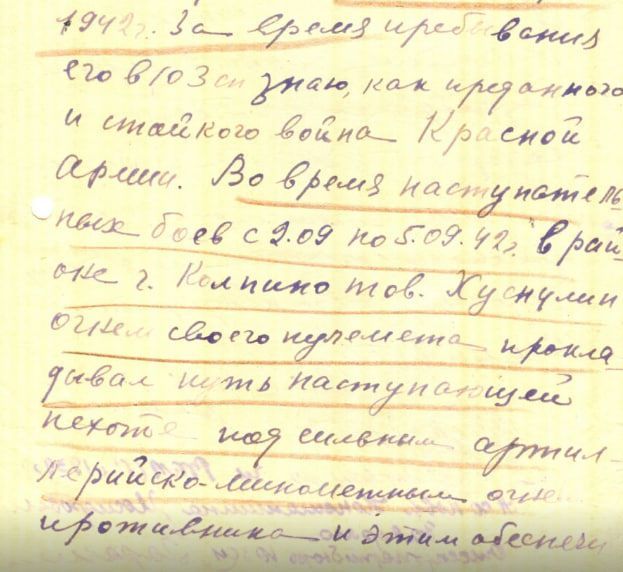 1942г. За время пребывания
его в 103 сп знаю, как преданного
и стойкого война Красной
Армии. Во время наступатель
ных боев с 2.09 по 5.09.42г. в рай-
оне г. Колпино тов. Хуснулин
огнем своего пулемета прокла
дывал путь наступающей
пехоте под сильным артил-
лерийско-минометным огнем
противника и этим обеспечи